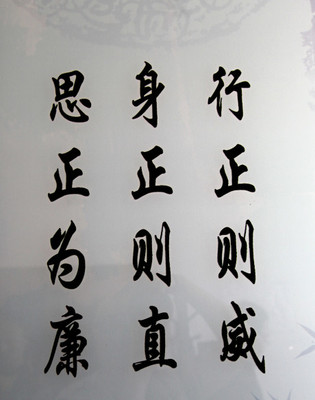 行正则威
身正则直
思正为廉